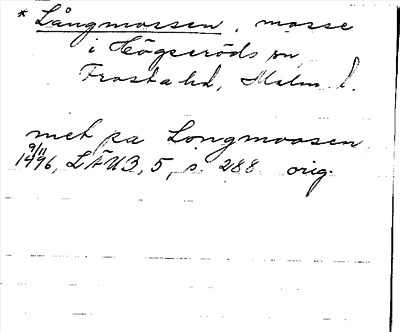 * Långmossen, mosse
i Högseröds sn,
Frosta hd, Malm. l.
met pa Longmoosen
9/11 1496, LÄU3, 5, s. 288 orig.